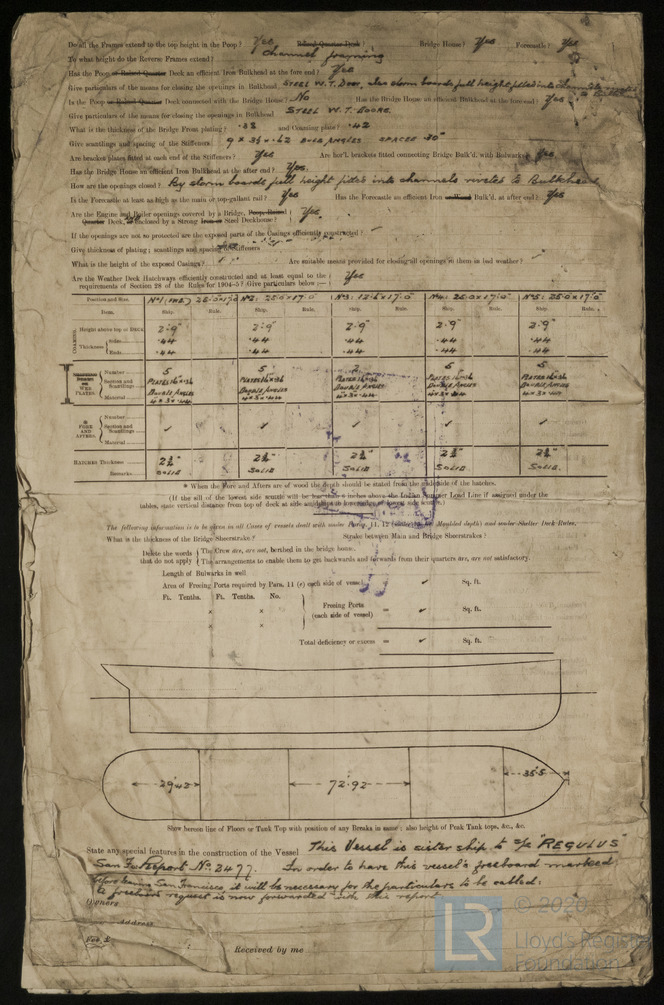 Do all the Frames extend to the top height in the Poop? Yes Raised Quarter Deck? Bridge House? Yes Forecastle? Yes
To what height do the Reverse Frames extend? Channel framing
Has the Poop or Raised Quarter Deck an efficient Iron Bulkhead at the fore end? Yes
Give particulars of the means for closing the openings in Bulkhead STEEL W.T. Door, also storm boards full height fitted into channels
Is the Poop or Raised Quarter Deck connected with the Bridge House? No Has the Bridge House an efficient Bulkhead at the fore end? Yes
Give particulars of the means for closing the openings in Bulkhead STEEL W.T. DOORS.
What is the thickness of the Bridge Front plating? .38 and Coaming plate? .42
Give scantlings and spacing of the Stiffeners 9 x 3½ x .42 BULB ANGLES SPACED 30"
Are bracket plates fitted at each end of the Stiffeners? Yes Are hor'l. brackets fitted connecting Bridge Bulk'd. with Bulwarks? Yes
Has the Bridge House an efficient Iron Bulkhead at the after end? Yes.
How are the openings closed? By storm boards full height fitted into channels riveted to Bulkhead
Is the Forecastle at least as high as the main or top-gallant rail? Yes Has the Forecastle an efficient Iron or Wood Bulk'd. at after end? Yes
Are the Engine and Boiler openings covered by a Bridge, Poop, Raised Yes.
Quarter Deck, or enclosed by a Strong Iron or Steel Deckhouse?
If the openings are not so protected are the exposed parts of the Casings efficiently constructed?
Give thickness of plating; scantlings and spacing of Stiffeners
What is the height of the exposed Casings? Are suitable means provided for closing all openings in them in bad weather?
Are the Weather Deck Hatchways efficiently constructed and at least equal to the Yes
requirements of Section 28 of the Rules for 1904-5? Give particulars below:—
Position and Size. No 1: 25.0 x 17.0 No 2: 25.0 x 17.0 No 3: 12.6 x 17.0 No 4: 25.0 x 17.0 No 5: 25.0 x 17.0
Item. Ship. Rule. Ship. Rule. Ship. Rule. Ship. Rule. Ship. Rule.
COAMING Height above top of DECK 2'.9" 2'.9" 2'.9" 2'.9" 2'.9"
Thickness Sides .44 .44 .44 .44 .44
Ends .44 .44 .44 .44 .44
WEB PLATES. Number 5 5 2 5 5
Section and Scantlings PLATES 16" x .36 PLATES 16" x .36 PLATES 16" x .36 PLATES 16" x .36 PLATES 16" x .36
DOUBLE ANGLES DOUBLE ANGLES DOUBLE ANGLES DOUBLE ANGLES DOUBLE ANGLES
Material 4 x 3 x .44 4 x 3 x .44 4 x 3 x .44 4 x 3 x .44 4 x 3 x .44
* FORE AND AFTERS. Number
Section and Scantlings ✓ ✓ ✓ ✓ ✓
Material
HATCHES Thickness 2½" 2½" 2½" 2½" 2½"
Remarks SOLID SOLID SOLID SOLID SOLID.
* When the Fore and Afters are of wood the depth should be stated from the underside of the hatches.
(If the sill of the lowest side scuttle will be less than 6 inches above the Indian Summer Load Line if assigned under the
tables, state vertical distance from top of deck at side amidships to lowest part of lowest side scuttle.)
The following information is to be given in all Cases of vessels dealt with under Paras. 11, 12 Moulded depth) and under Shelter Deck Rules.
What is the thickness of the Bridge Sheerstrake? Strake between Main and Bridge Sheerstrakes?
Delete the words The Crew are, are not, berthed in the bridge house.
that do not apply The arrangements to enable them to get backwards and forwards from their quarters are, are not satisfactory.
Length of Bulwarks in well
Area of Freeing Ports required by Para. 11 (e) each side of vessel ✓ Sq. ft.
Ft. Tenths. Ft. Tenths. No.
× × Freeing Ports (each side of vessel) = ✓ Sq. ft.
× ×
Total deficiency or excess = ✓ Sq. ft.
29'.42 72'.92 35'.5
Show hereon line of Floors or Tank Top with position of any Breaks in same; also height of Peak Tank tops, &c., &c.
State any special features in the construction of the Vessel This Vessel is sister ship to S/S "REGULUS"
San F. Report No. 2477. In order to have this vessel's freeboard marked
before leaving San Francisco, it will be necessary for the particulars to be cabled:
freeboard request is now forwarded with this report
Owners
Address
Fee £
Received by me
LR
© 2020
Lloyd's Register
Foundation